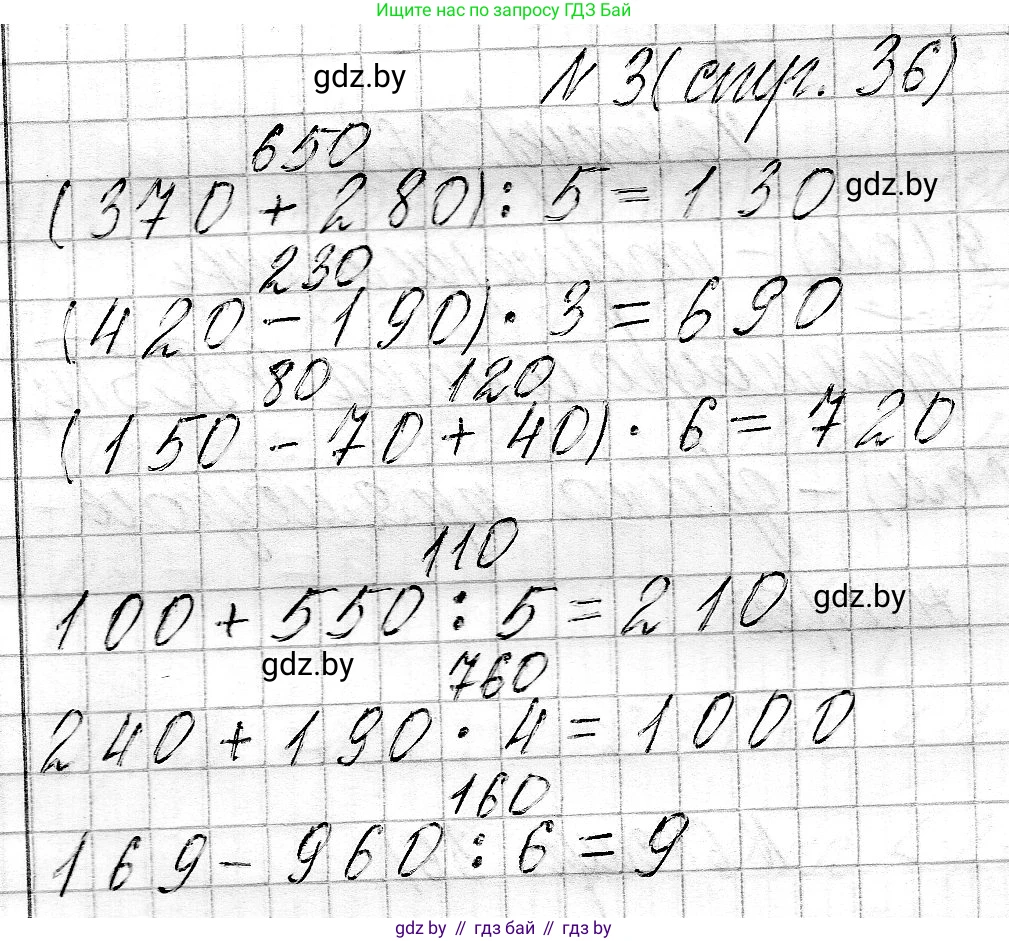 Ищите нас по запросу ГДЗ Бай
gdz.by № 3 (стр. 36)
650
(370 + 280) : 5 = 130 gdz.by
230
(420 - 190) · 3 = 690
80 120
(150 - 70 + 40) · 6 = 720
110
100 + 550 : 5 = 210 gdz.by
gdz.by 760
240 + 190 · 4 = 1000
160
169 - 960 : 6 = 9
gdz.by // гдз бай // gdz.by